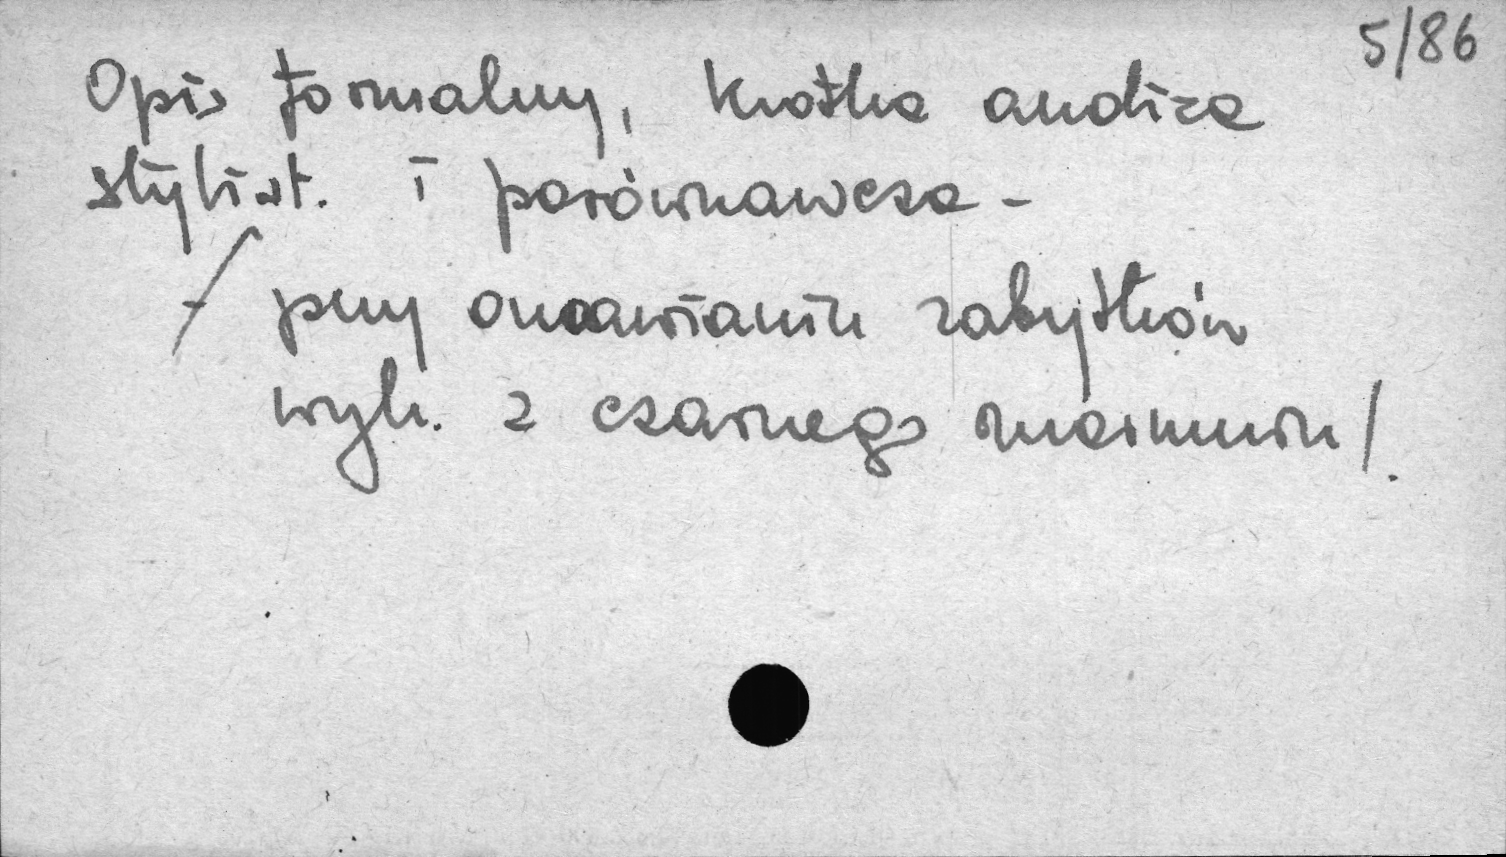 5/86
Opis formalny, krótka analiza
stylist. i porównawcza -
- / przy omawianiu zabytków
wyk. z czarnego marmuru /.